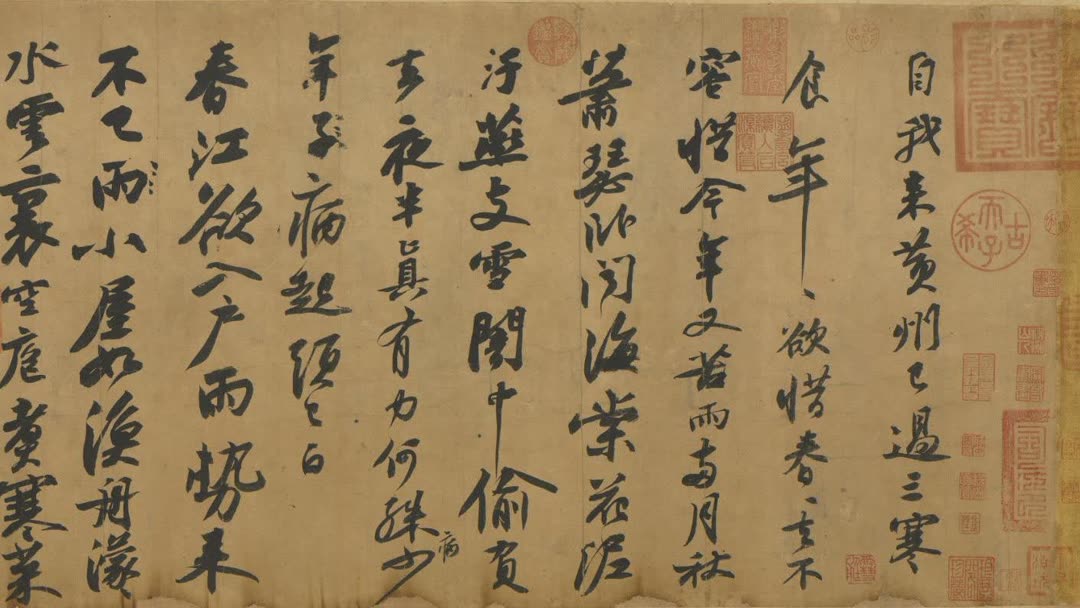 古希天子
自我來黃州已過三寒
食年〻欲惜春〻去不
容惜今年又苦雨兩月秋
蕭瑟臥聞海棠花泥
汙燕支雪闇中偷負
去夜半真有力何殊少病
年子病起頭已白
春江欲入戶雨勢來
不已雨小屋如漁舟濛
水雲裏空庖煮寒菜